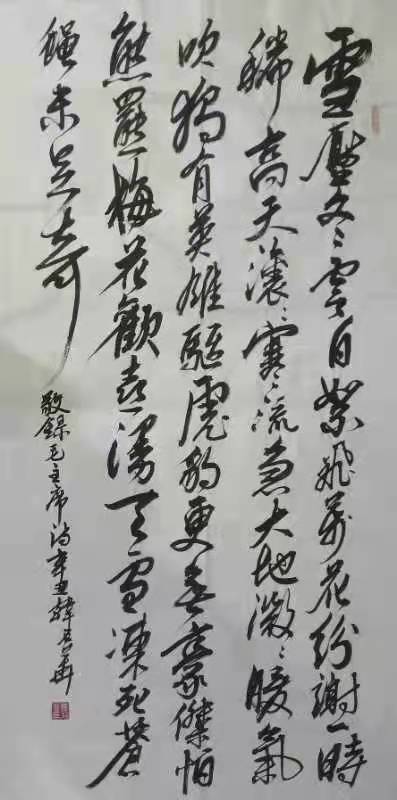 雪壓冬雲白絮飛萬花紛謝一時
稀高天滾〻寒流急大地微〻暖氣
吹獨有英雄驅虎豹更無豪傑怕
熊羆梅花歡喜漫天雪凍死蒼
蠅未足奇
敬錄毛主席詩辛丑韓